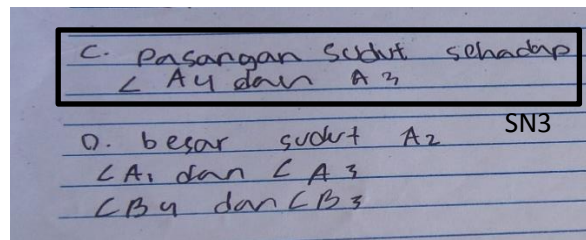 C. Pasangan sudut sehadap
∠ A4 dan A3
SN3
D. besar sudut A2
∠A1 dan ∠A3
∠B4 dan ∠B3